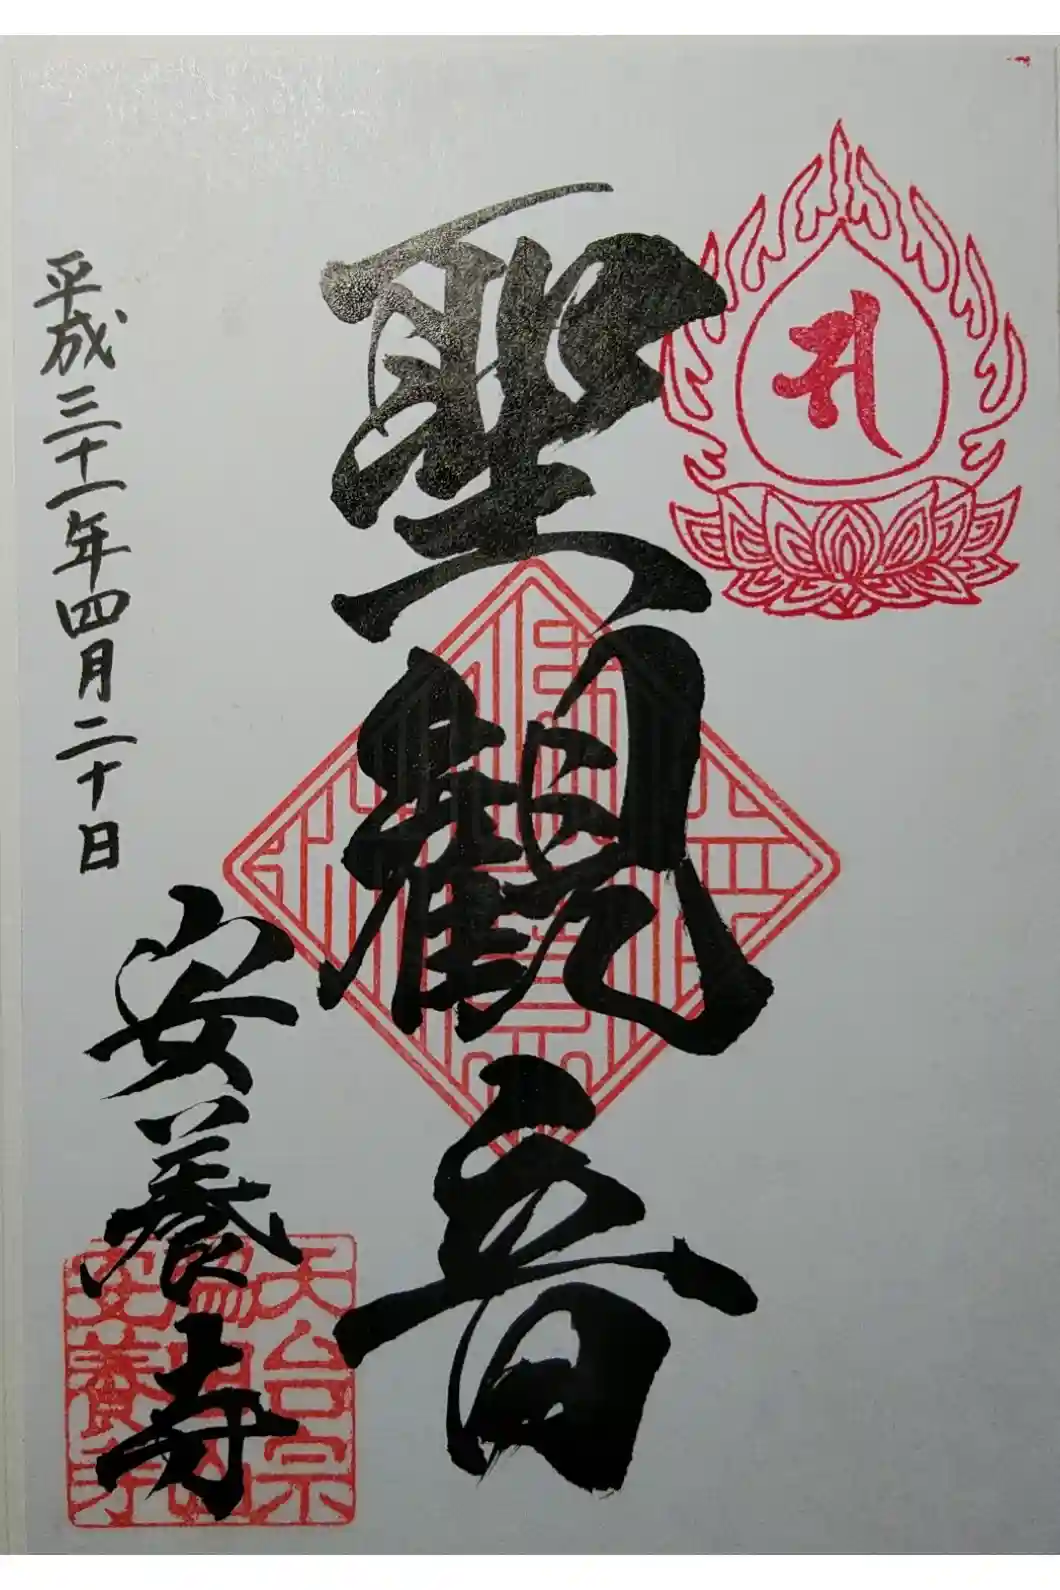 聖觀音
平成三十一年四月二十日
安養寺
天台宗
安養寺